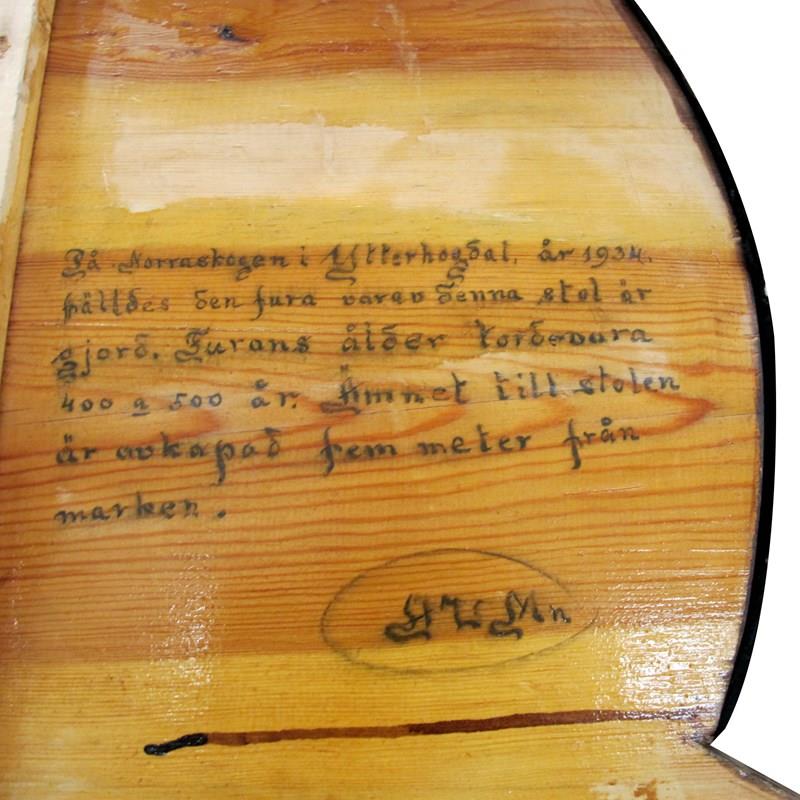 På Norraskogen i Ytterhogdal, år 1934,
fälldes den fura varav denna stol är
gjord. Furans ålder tordevara
400 a 500 år. Ämnet till stolen
är avkapad fem meter från
marken.